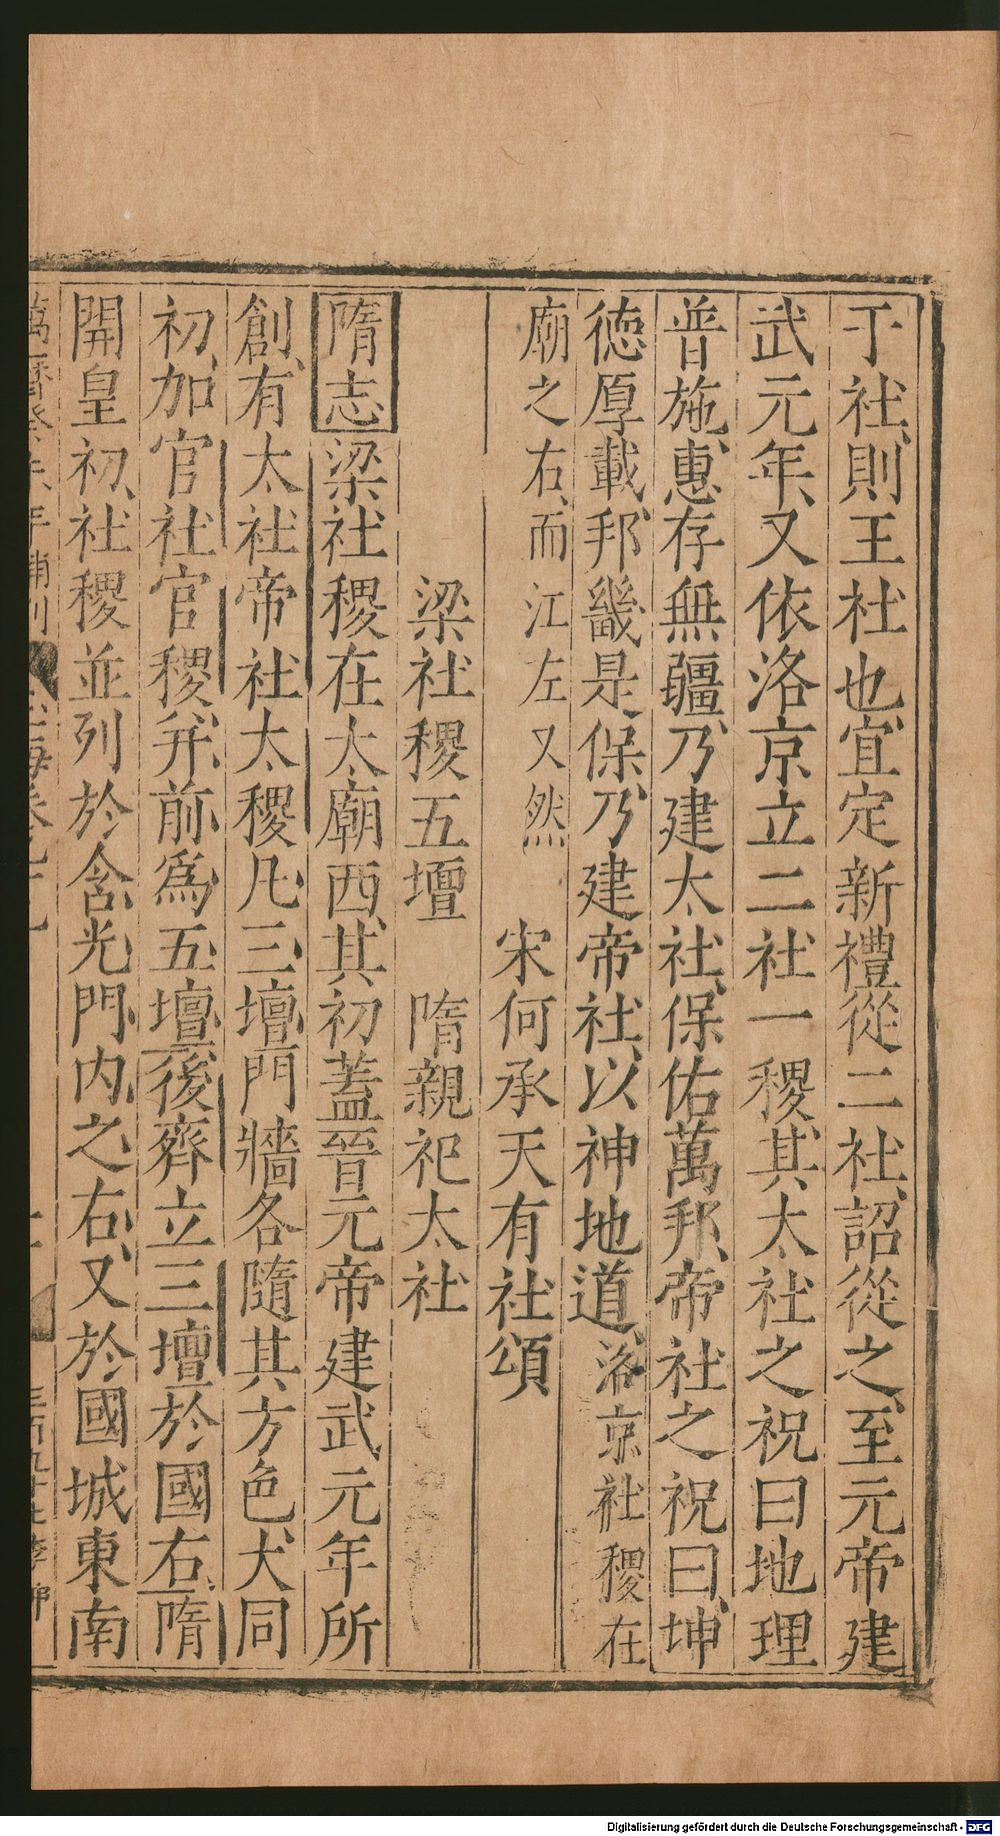 于社則王社也宜定新禮從二社詔從之至元帝建
武元年又依洛京立二社一稷其太社之祝曰地理
普施惠存無疆乃建太社保佑萬邦帝社之祝曰坤
徳厚載邦畿是保乃建帝社以神地道洛京社稷在
廟之右而江左又然　宋何承天有社頌
梁社稷五壇　隋親祀太社
隋志梁社稷在太廟西其初蓋晉元帝建武元年所
創有太社帝社太稷凡三壇門牆各隨其方色犬同
初加官社官稷并前爲五壇後齊立三壇於國右隋
開皇初社稷並列於含光門内之右又於國城東南
萬曆癸年補刊
Digitalisierung gefördert durch die Deutsche Forschungsgemeinschaft - DFG